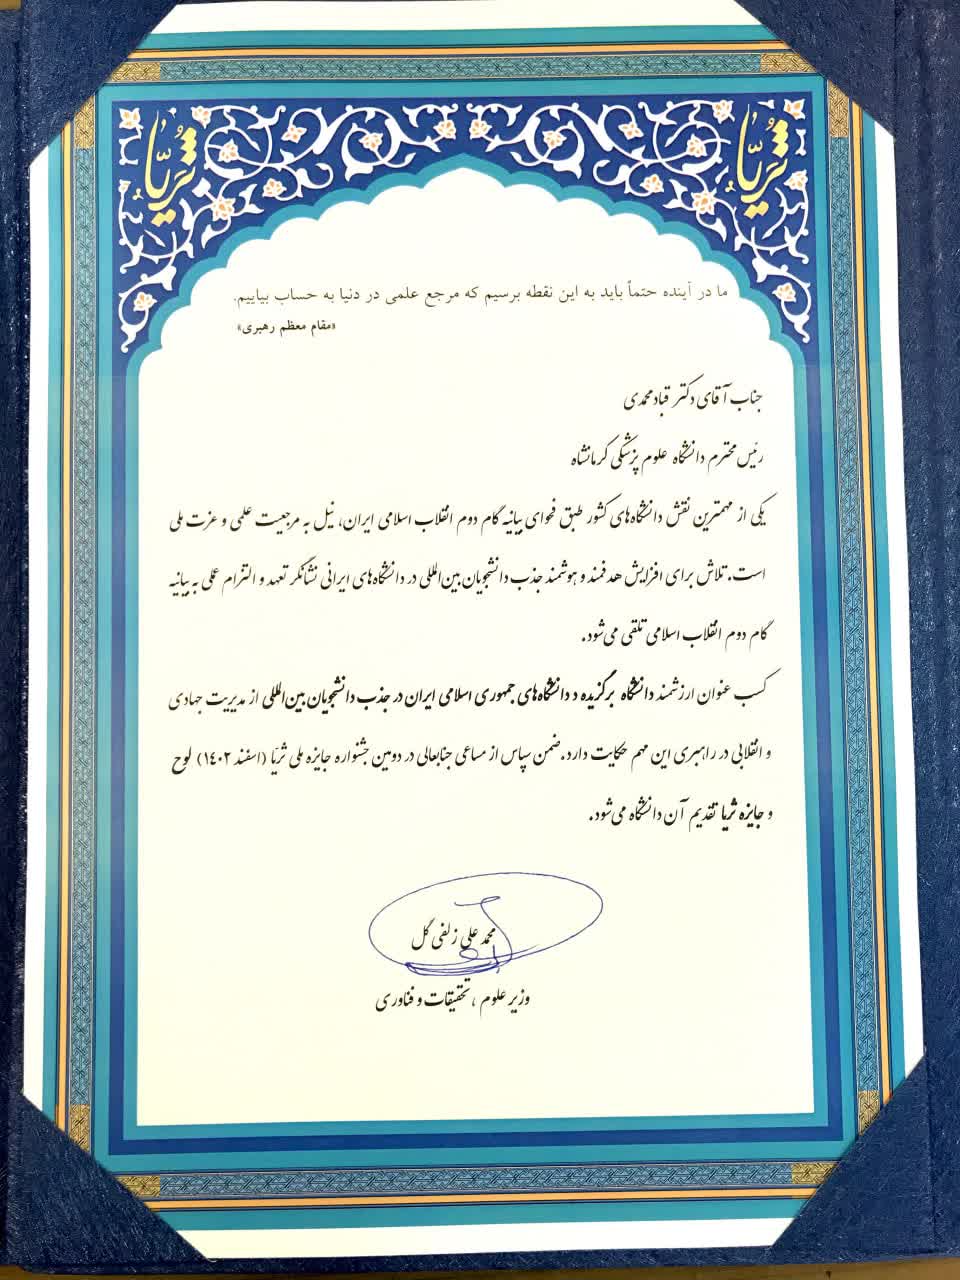 ثریّا
ثریّا
ما در آینده حتماً باید به این نقطه برسیم که مرجع علمی در دنیا به حساب بیاییم.
«مقام معظم رهبری»
جناب آقای دکتر قبادمحمدی
رئیس محترم دانشگاه علوم پزشکی کرمانشاه
یکی از مهمترین نقش دانشگاه‌های کشور طبق فحوای بیانیه گام دوم انقلاب اسلامی ایران، نیل به مرجعیت علمی و عزت ملی
است. تلاش برای افزایش هدفمند و هوشمند جذب دانشجویان بین‌المللی در دانشگاه‌های ایرانی نشانگر تعهد و التزام عملی به بیانیه
گام دوم انقلاب اسلامی تلقی می‌شود.
کسب عنوان ارزشمند دانشگاه برگزیده د دانشگاه‌های جمهوری اسلامی ایران در جذب دانشجویان بین‌المللی از مدیریت جهادی
و انقلابی در راهبری این مهم حکایت دارد. ضمن سپاس از مساعی جنابعالی در دومین جشنواره جایزه ملی ثریّا (اسفند ۱۴۰۲) لوح
و جایزه ثریا تقدیم آن دانشگاه می‌شود.
محمد علی زلفی گل
وزیر علوم، تحقیقات و فناوری